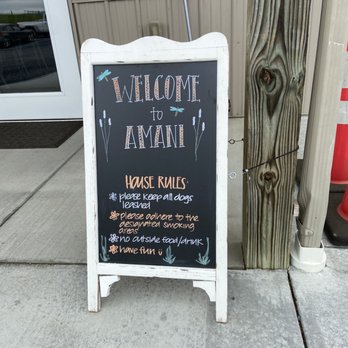 WELCOME
to
AMANI
HOUSE RULES:
please keep all dogs
leashed
please adhere to the
designated smoking
areas
no outside food/drink
have fun